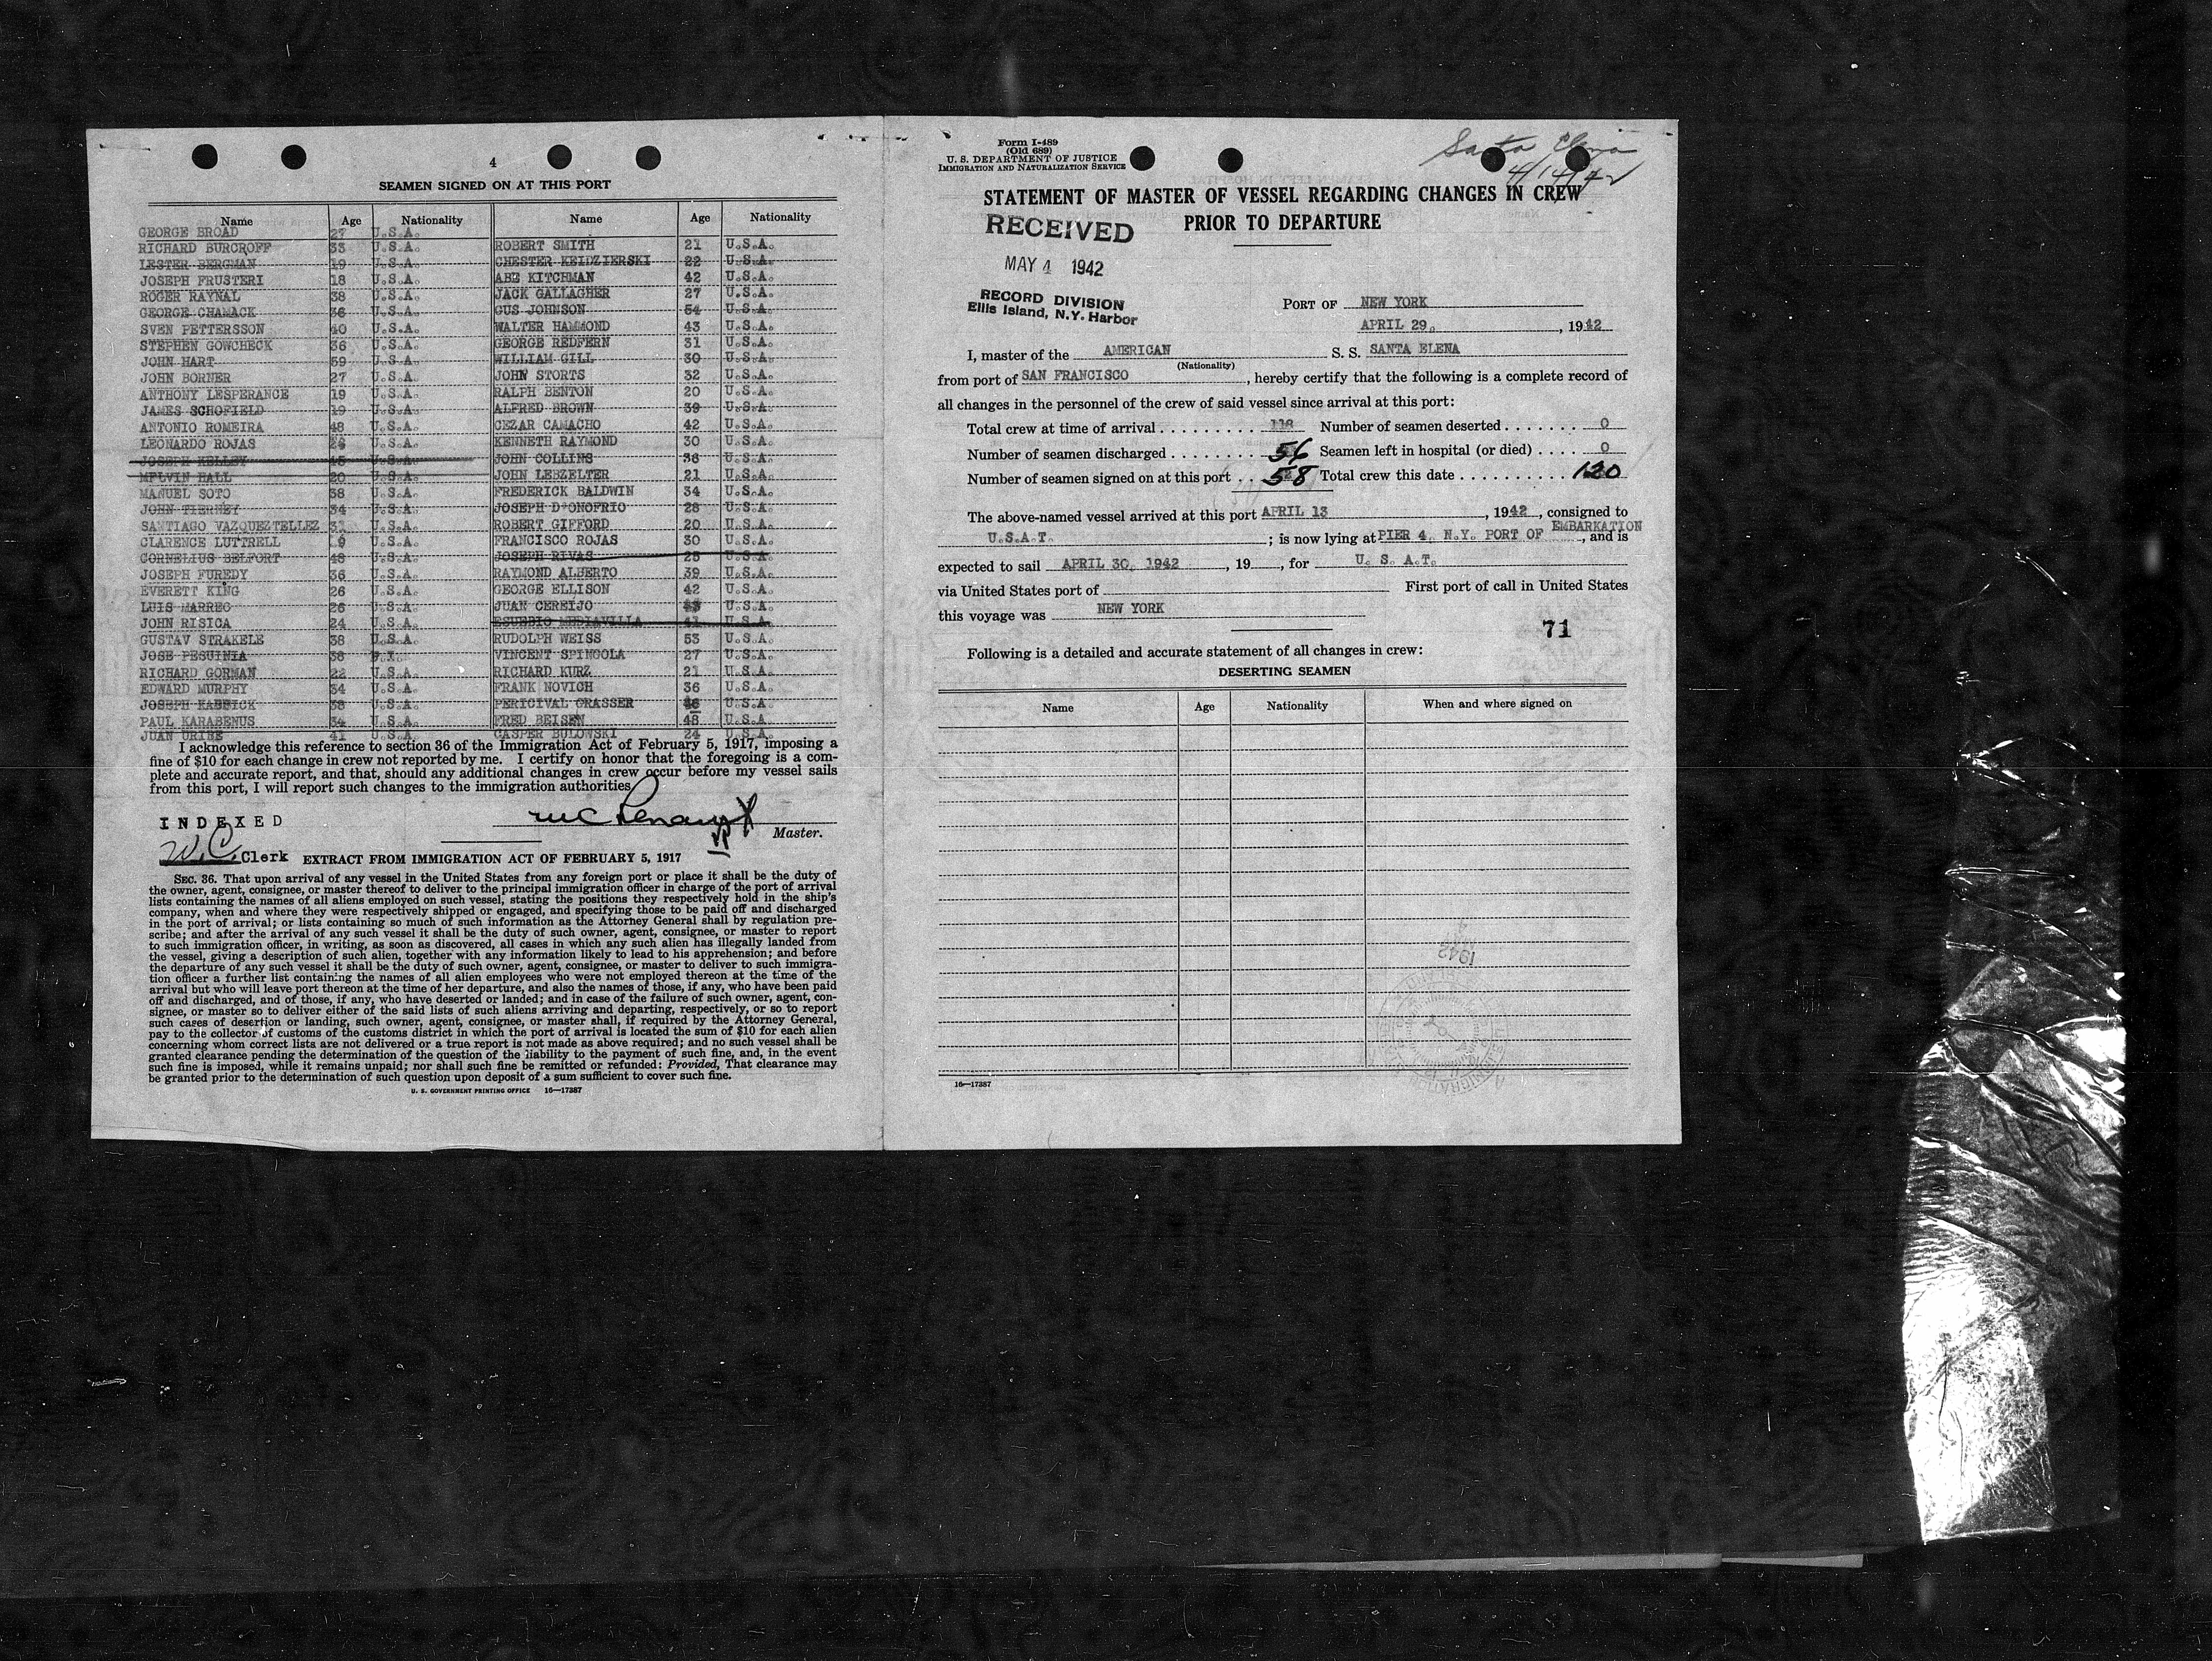 4
SEAMEN SIGNED ON AT THIS PORT
Name Age Nationality Name Age Nationality
GEORGE BROAD 27 U.S.A.
RICHARD BURCROFF 33 U.S.A. ROBERT SMITH 21 U.S.A.
LESTER BERGMAN 19 U.S.A. CHESTER KEIDZIERSKI 22 U.S.A.
JOSEPH FRUSTERI 18 U.S.A. ABE KITCHMAN 42 U.S.A.
ROGER RAYNAL 38 U.S.A. JACK GALLAGHER 27 U.S.A.
GEORGE CHAMACK 36 U.S.A. GUS JOHNSON 54 U.S.A.
SVEN PETTERSSON 40 U.S.A. WALTER HAMMOND 43 U.S.A.
STEPHEN GOWCHECK 36 U.S.A. GEORGE REDFERN 31 U.S.A.
JOHN HART 59 U.S.A. WILLIAM GILL 30 U.S.A.
JOHN BORNER 27 U.S.A. JOHN STORTS 32 U.S.A.
ANTHONY LESPERANCE 19 U.S.A. RALPH BENTON 20 U.S.A.
JAMES SCHOFIELD 19 U.S.A. ALFRED BROWN 39 U.S.A.
ANTONIO ROMEIRA 48 U.S.A. CEZAR CAMACHO 42 U.S.A.
LEONARDO ROJAS U.S.A. KENNETH RAYMOND 30 U.S.A.
JOSEPH KELLEY 45 U.S.A. JOHN COLLINS 36 U.S.A.
MELVIN HALL 20 U.S.A. JOHN LEBZELTER 21 U.S.A.
MANUEL SOTO 38 U.S.A. FREDERICK BALDWIN 34 U.S.A.
JOHN TIERNEY 34 U.S.A. JOSEPH D'ONOFRIO 28 U.S.A.
SANTIAGO VAZQUEZTELLEZ 31 U.S.A. ROBERT GIFFORD 20 U.S.A.
CLARENCE LUTTRELL 19 U.S.A. FRANCISCO ROJAS 30 U.S.A.
CORNELIUS BELFORT 48 U.S.A. JOSEPH RIVAS 25 U.S.A.
JOSEPH FUREDY 36 U.S.A. RAYMOND ALBERTO 39 U.S.A.
EVERETT KING 26 U.S.A. GEORGE ELLISON 42 U.S.A.
LUIS MARREO 26 U.S.A. JUAN CEREIJO U.S.A.
JOHN RISICA 24 U.S.A. ESUEBIO MEDIAVILLA 41 U.S.A.
GUSTAV STRAKELE 38 U.S.A. RUDOLPH WEISS 53 U.S.A.
JOSE PESUINIA 38 P.I. VINCENT SPINGOLA 27 U.S.A.
RICHARD GORMAN 22 U.S.A. RICHARD KURZ 21 U.S.A.
EDWARD MURPHY 34 U.S.A. FRANK NOVICH 36 U.S.A.
JOSEPH KABNICK 38 U.S.A. PERICIVAL GRASSER 46 U.S.A.
PAUL KARABENUS 34 U.S.A. FRED BEISEN 48 U.S.A.
JUAN URIBE 41 U.S.A. CASPER BULOWSKI 24 U.S.A.
I acknowledge this reference to section 36 of the Immigration Act of February 5, 1917, imposing a
fine of $10 for each change in crew not reported by me. I certify on honor that the foregoing is a com-
plete and accurate report, and that, should any additional changes in crew occur before my vessel sails
from this port, I will report such changes to the immigration authorities.
INDEXED
Master.
W.C. Clerk
EXTRACT FROM IMMIGRATION ACT OF FEBRUARY 5, 1917
SEC. 36. That upon arrival of any vessel in the United States from any foreign port or place it shall be the duty of
the owner, agent, consignee, or master thereof to deliver to the principal immigration officer in charge of the port of arrival
lists containing the names of all aliens employed on such vessel, stating the positions they respectively hold in the ship's
company, when and where they were respectively shipped or engaged, and specifying those to be paid off and discharged
in the port of arrival; or lists containing so much of such information as the Attorney General shall by regulation pre-
scribe; and after the arrival of any such vessel it shall be the duty of such owner, agent, consignee, or master to report
to such immigration officer, in writing, as soon as discovered, all cases in which any such alien has illegally landed from
the vessel, giving a description of such alien, together with any information likely to lead to his apprehension; and before
the departure of any such vessel it shall be the duty of such owner, agent, consignee, or master to deliver to such immigra-
tion officer a further list containing the names of all alien employees who were not employed thereon at the time of the
arrival but who will leave port thereon at the time of her departure, and also the names of those, if any, who have been paid
off and discharged, and of those, if any, who have deserted or landed; and in case of the failure of such owner, agent, con-
signee, or master so to deliver either of the said lists of such aliens arriving and departing, respectively, or so to report
such cases of desertion or landing, such owner, agent, consignee, or master shall, if required by the Attorney General,
pay to the collector of customs of the customs district in which the port of arrival is located the sum of $10 for each alien
concerning whom correct lists are not delivered or a true report is not made as above required; and no such vessel shall be
granted clearance pending the determination of the question of the liability to the payment of such fine, and, in the event
such fine is imposed, while it remains unpaid; nor shall such fine be remitted or refunded: Provided, That clearance may
be granted prior to the determination of such question upon deposit of a sum sufficient to cover such fine.
U. S. GOVERNMENT PRINTING OFFICE 16—17387
Form I-489
(Old 689)
U. S. DEPARTMENT OF JUSTICE
IMMIGRATION AND NATURALIZATION SERVICE
Santa Elena
4/14/42
STATEMENT OF MASTER OF VESSEL REGARDING CHANGES IN CREW
PRIOR TO DEPARTURE
RECEIVED
MAY 4 1942
RECORD DIVISION
Ellis Island, N.Y. Harbor
PORT OF NEW YORK
APRIL 29, 1942
I, master of the AMERICAN S. S. SANTA ELENA
(Nationality)
from port of SAN FRANCISCO, hereby certify that the following is a complete record of
all changes in the personnel of the crew of said vessel since arrival at this port:
Total crew at time of arrival 118 Number of seamen deserted 0
Number of seamen discharged 56 Seamen left in hospital (or died) 0
Number of seamen signed on at this port 58 Total crew this date 120
The above-named vessel arrived at this port APRIL 13, 1942, consigned to
U.S.A.T.; is now lying at PIER 4, N.Y. PORT OF EMBARKATION, and is
expected to sail APRIL 30, 1942, 19, for U. S. A.T.
via United States port of First port of call in United States
this voyage was NEW YORK
71
Following is a detailed and accurate statement of all changes in crew:
DESERTING SEAMEN
Name Age Nationality When and where signed on
1942
16—17387